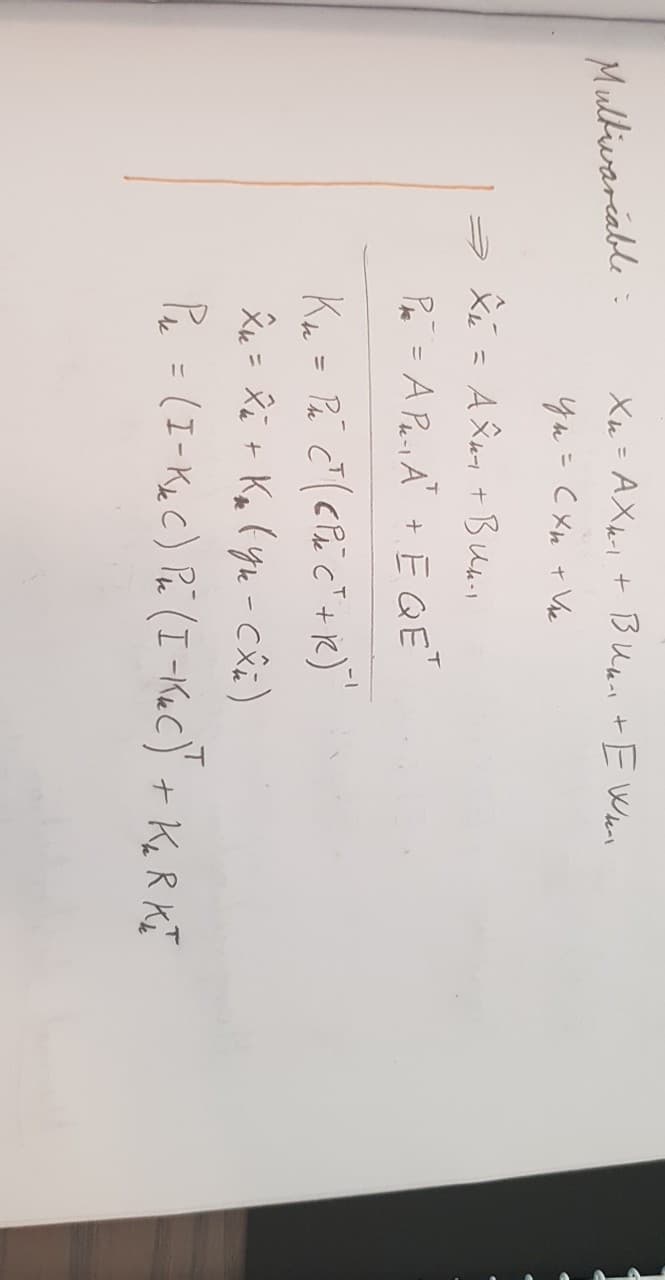 Multivariable : xₖ = Axₖ₋₁ + Buₖ₋₁ + E wₖ₋₁
yₖ = Cxₖ + vₖ
⇒ x̂ₖ⁻ = A x̂ₖ₋₁ + B uₖ₋₁
Pₖ⁻ = A Pₖ₋₁ Aᵀ + E Q Eᵀ
Kₖ = Pₖ⁻ Cᵀ (C Pₖ⁻ Cᵀ + R)⁻¹
x̂ₖ = x̂ₖ⁻ + Kₖ (yₖ - C x̂ₖ⁻)
Pₖ = (I - Kₖ C) Pₖ⁻ (I - Kₖ C)ᵀ + Kₖ R Kₖᵀ